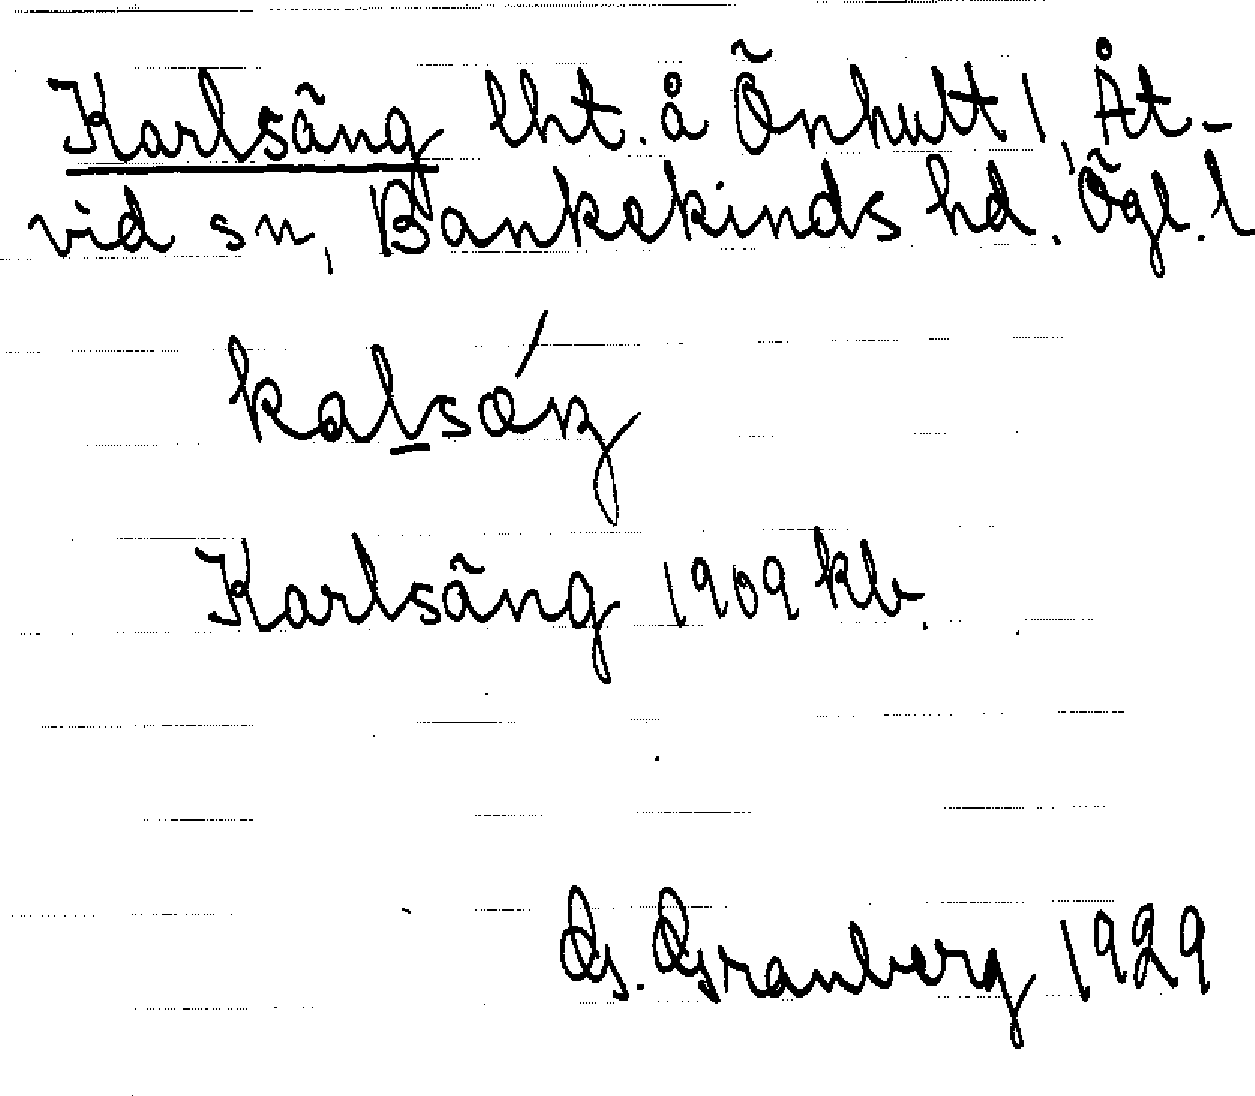 Karlsäng lht. å Önhult 1, Åt-
vid sn, Bankekinds hd. Ögl. l
Karlsäng 1909 kb.
G. Granberg 1929